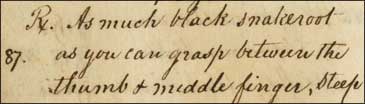 ℞. As much black snakeroot
87. as you can grasp between the
thumb & middle finger, steep